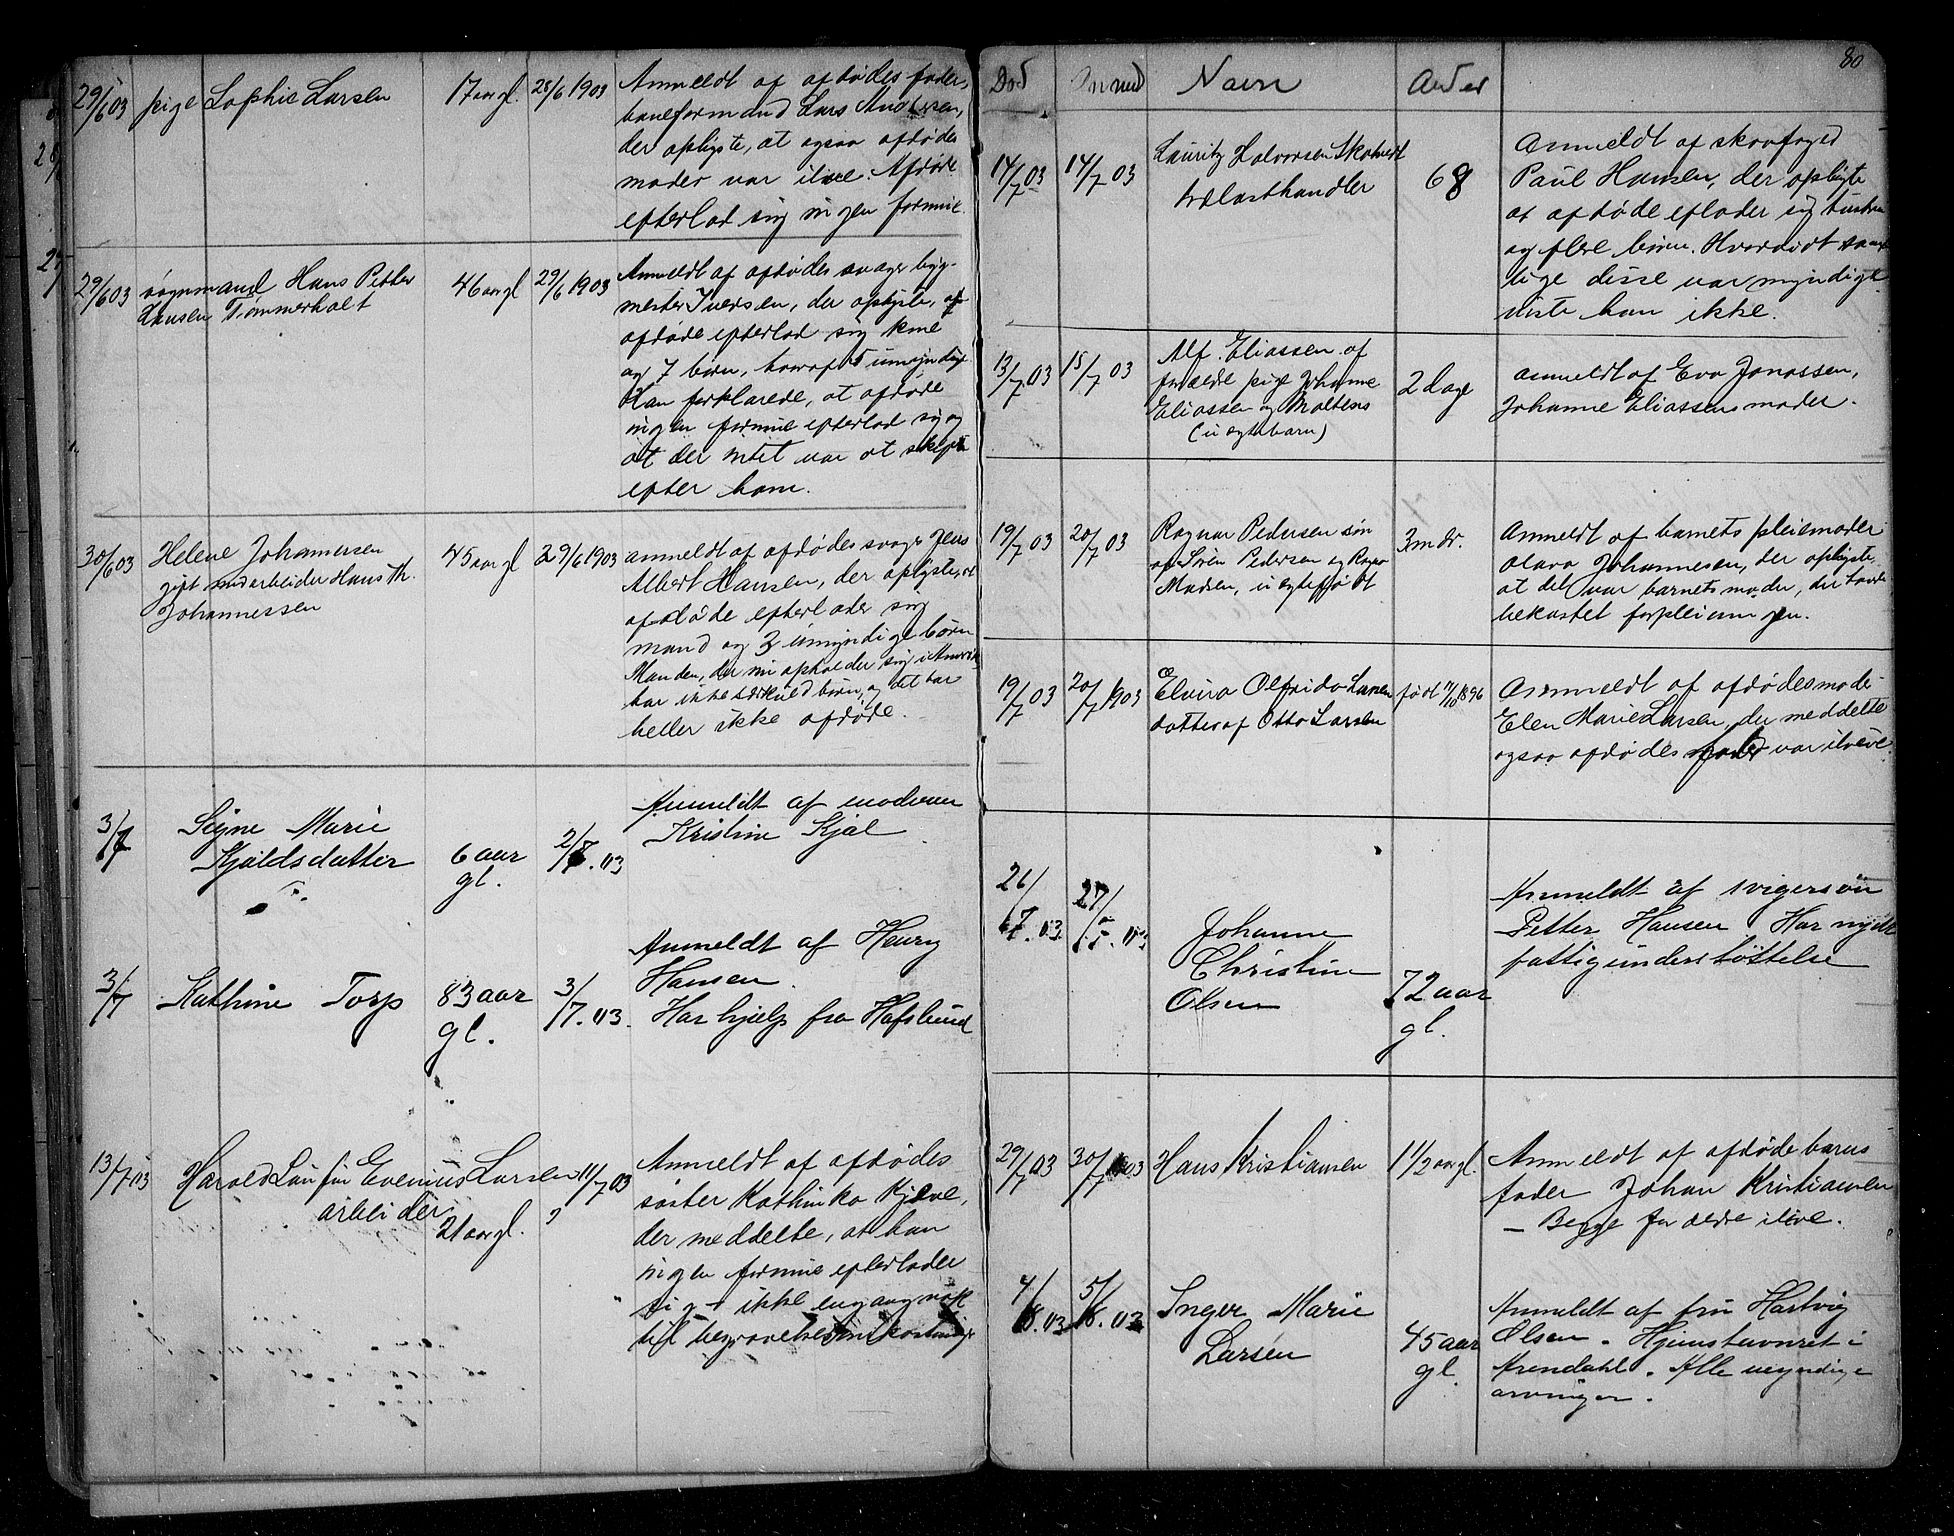 29/6 03 pige Sophie Larsen 17 aar gl. 28/6 1903 Anmeldt af afdødes fader,
baneformand Lars Andersen,
der oplyste, at ogsaa afdødes
moder var ilive. Afdøde
efterlod sig ingen formue.
29/6 03 søgnmand Hans Petter
Hansen Tømmerholt 46 aar gl 29/6 1903 Anmeldt af afdødes svager byg-
mester Iversen, der oplyste, at
afdøde efterlod sig kone
og 7 børn, hvoraf 5 umyndige.
Han forklarede, at afdøde
ingen formue efterlod sig og
at der intet var at skifte
efter ham.
30/6 03 Helene Johannersen
gift m. arbeider Hans Th.
Johannessen 45 aar gl 29/6 1903 anmeldt af afdødes svoger Jens
Albert Hansen, der oplyste, at
afdøde efterlader sig
mand og 3 umyndige børn
Manden, der nu opholder sig i Amerika
har ikke særkuld børn, og det har
heller ikke afdøde.
3/7 Signe Marie
Kjøldsdatter 6 aar
gl. 2/7.03 Anmeldt af moderen
Kristine Kjøl
3/7 Kathrine Torp 83 aar
gl. 3/7.03. Anmeldt af Henry
Hansen.
Har hjælp fra Hafslund
13/7 03 Harald Laufin Evenius Larsen
arbeider 21 aar gl. 11/7 03 Anmeldt af afdødes
søster Kathinka Kjeve,
der meddelte, at han
ingen formue efterlader
sig - ikke engang nok
til begravelsesomkostninger
80
Død Anmeld Navn Alder
14/7 03 14/7 03 Lauritz Halvorsen Skolvedt
trælasthandler 68 Anmeldt af skovfoged
Paul Hansen, der oplyste
at afdøde eflader sig hustru
og flere børn. Hvorvidt samt-
lige disse var myndige
viste han ikke.
13/7 03 15/7 03 Alf. Eliassen af
forældre pige Johanne
Eliassen og
(uegtebarn) 2 dage anmeldt af Eva Jonassen,
Johanne Eliassens moder.
19/7 03 20/7 03 Ragnar Pedersen søn
af Søren Pedersen og
Madsen, uegtefødt 3 mdr. Anmeldt af barnets pleiemoder
Olava Johannesen, der oplyste
at det var barnets moder, der havde
bekostet forpleiningen.
19/7 03 20/7 1903 Elvira Olfrida Larsen
datter af Otto Larsen født 7/10 1896 Anmeldt af afdødes moder
Elen Marie Larsen, der meddelte
ogsaa afdødes fader var ilive.
26/7.03 27/7.03 Johanne
Christine
Olsen 72 aar
gl. Anmeldt af svigersøn
Petter Hansen Har nydt
fattigunderstøttelse
29/7 03 30/7 03 Hans Kristiansen 1 1/2 aar gl. Anmeldt af afdøde barns
fader Johan Kristiansen
- Begge forældre ilive.
4/8.03 5/8.03 Inger Marie
Larsen 45 aar
gl. Anmeldt af fru Hartvig
Olsen. Hjemstavnret i
Arendahl. Alle myndige
arvinger.